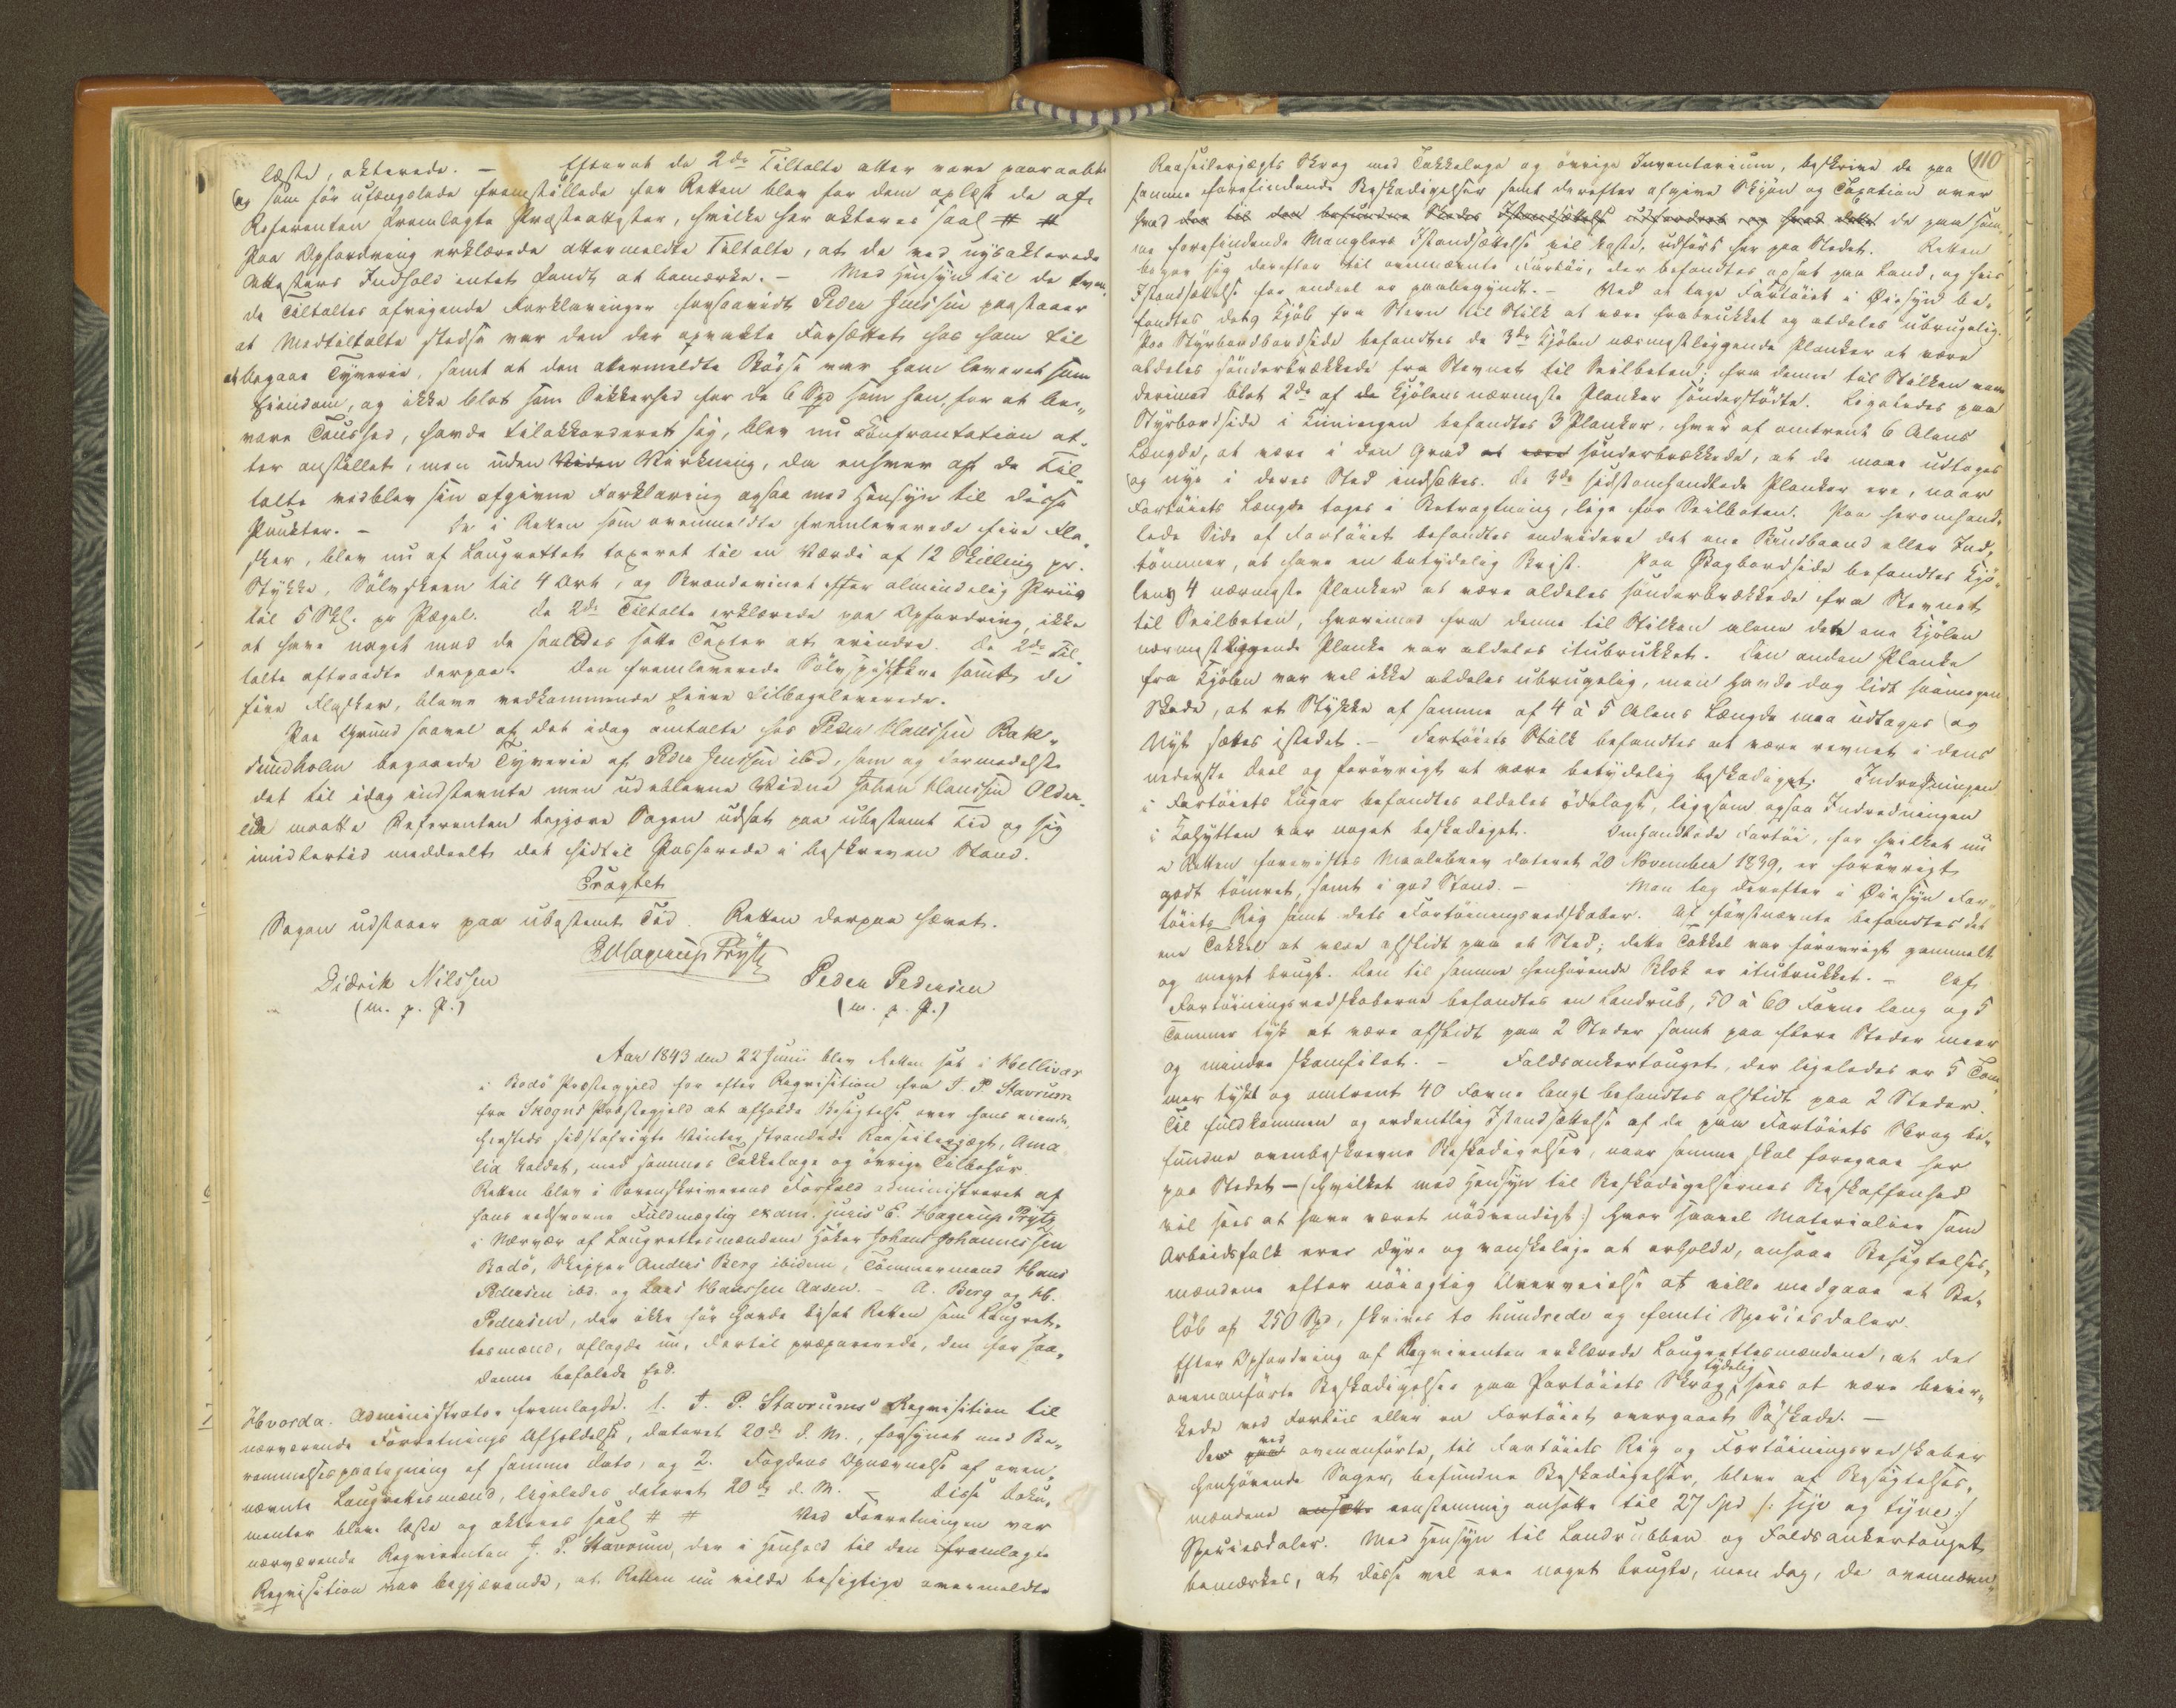 læste, akterede. – Efterat de 2de Tiltalte atter vare paaraabte
og som før ufængslede fremstillede for Retten blev for dem oplæst de af
Referenten fremlagte Præsteattester, hvilke her akteres saal. # #
Paa Opfordring erklærede attermeldte Tiltalte, at de ved nysakterede
Attesters Indhold intet fandt at bemærke. – Med Hensyn til de tven¬
de Tiltaltes afvigende Forklaringer forsaavidt Peder Jenssen paastaaer
at Medtiltalte stedse var den der opvakte Forsættet hos ham til
at begaae Tyverie, samt at den attermeldte Bøsse var ham leveret som
Eiendom, og ikke blot som Sikkerhed for de 6 Spd som han, for at be¬
vare Taushed, havde tilakkorderet sig, blev nu Konfrontation at¬
ter anstillet, men uden Viden Virkning, da enhver af de Til¬
talte vedblev sin afgivne Forklaring ogsaa med Hensyn til disse
Punkter. – De i Retten som ovenmeldte fremleverede fire Fla¬
sker, blev nu af Laugrettet taxeret til en Værdi af 12 Skilling pr.
Stykke, Sølvskeen til 4 Ort, og Brændevinet efter almindelig Priis
til 5 Skl. pr Pægel. De 2de Tiltalte erklærede paa Opfordring ikke
at have noget mod de saaledes satte Taxter at erindre. De 2de Til¬
talte aftraadte derpaa. Den fremleverede Sølvspiseskee samt de
fire Flasker, bleve vedkommende Eiere tilbageleverede.
Paa Grund saavel af det idag omtalte hos Peder Hanssen Bak¬
sundholm begaaede Tyverie af Peder Jenssen ibd, som og formedelst
det til idag indstevnte men udeblevne Vidne Johan Hanssen Older¬
eide maatte Referenten begjære Sagen udsat paa ubestemt Tid og sig
imidlertid meddeelt det hidtil Passerede i beskreven Stand.
Eragtet
Sagen udstaaer paa ubestemt Tid. Retten derpaa hævet.
E Hagerup Prytz
Didrik Nilssen Peder Pedersen
(m. p. P.) (m. p. P.)
Aar 1843 den 22 Junii blev Retten sat i Hellivær
i Bodö Præstegjeld for efter Reqvisition fra J. P. Stavrum
fra Skogns Præstegjeld at afholde Besigtelse over hans eiende,
hersteds sidstafvigte Vinter strandede Raaseilerjægt, Ama
lia kaldet, med sammes Takkelage og övrige Tilbehör.
Retten blev i Sorenskriverens Forfald administreret af
hans edsvorne Fuldmægtig exam. juris E. Hagerup Prytz
i Nærvær af Laugrettesmændene Höker Johan Johannessen
Bodö, Skipper Anders Berg ibidem, Tömmermand Hans
Pedersen ibd. og Lars Hanssen Aasen. – A. Berg og H.
Pedersen, der ikke för havde besat Retten som Laugret¬
tesmænd, aflagde nu, dertil præparerede, den for saa¬
danne befalede Eed.
Hvorda. Administrator fremlagde. 1. J. P. Stavrums Reqvisition til
nærværende Forretnings Afholdelse, dateret 20de d. M., forsynet med Be¬
rammelsespaategning af samme Dato, og 2. Fogdens Opnævnelse af oven¬
nævnte Laugrettesmænd, ligeledes dateret 20de d. M. – Disse Doku¬
menter bleve læste og akteres saal. # # Ved Forretningen var
nærværende Reqvirenten J. P. Stavrum, der i Henhold til den fremlagte
Reqvisition var begjærende, at Retten nu vilde besigtige ovenmeldte
110
Raaseilerjægts Skrog med Takkelage og övrige Inventarium, beskrive de paa
samme forefindende Beskadigelser samt derefter afgive Skjön og Taxation over
hvad den til den befundne Skades Istandsættelse udfordret og hvad dette de paa sam¬
me forefindende Manglers Istandsættelse vil koste, udförs her paa Stedet. Retten
begav sig derefter til ovennævnte Fartöi, der befandtes opsat paa Land, og hvis
Istandsættelse for endeel er paabegyndt. – Ved at tage Fartöiet i Öiesyn be¬
fandtes dets Kjöl fra Stevn til Stilk at være frabrukket og aldeles ubrugelig.
Paa Styrbordbordside befandtes de 3de Kjölen nærmestliggende Planker at være
aldeles sönderbrækkede fra Stevnet til Seilbeten; fra denne til Stilken vare
derimod blot 2de af de Kjölens nærmeste Planker sönderstödte. Ligeledes paa
Styrbordside i Kimingen befandtes 3 Planker, hver af omtrent 6 Alens
Længde, at være i den Grad at være sönderbrækkede, at de maae udtages
og nye i deres Sted indsættes. De 3de sidstomhandlede Planker ere, naar
Fartöiets Længde tages i Betragtning, lige for Seilbeten. Paa heromhand¬
lede Side af Fartöiet befandtes endvidere det ene Bundbaand eller Ind¬
tömmer, at have en betydelig Brist. Paa Bagbordside befandtes Kjö¬
lens 4 nærmeste Planker at være aldeles sönderbrækkede fra Stevnet
til Seilbeten, hvorimod fra denne til Stilken alene det ene Kjölen
nærmestliggende Planke var aldeles itubrukket. Den anden Planke
fra Kjölen var vel ikke aldeles ubrugelig, men havde dog lidt saamegen
Skade, at et Stykke af samme af 4 à 5 Alens Længde maa udtages og
Nyt sættes istedet. – Fartöiets Stilk befandtes at være revnet i dens
nederste Deel og forövrigt at være betydelig beskadiget. Indredningen
i Fartöiets Lugar befandtes aldeles ödelagt, ligesom ogsaa Indredningen
i Kahytten var noget beskadiget. Omhandlede Fartöi, for hvilket nu
i Retten forevistes Maalebrev dateret 20 November 1839, er forövrigt
godt tömret, samt i god Stand. – Man tog derefter i Öiesyn Far¬
töiets Rig samt dets Fortöiningsredskaber. Af förstnævnte befandtes det
ene Takkel at være afslidt paa et Sted; dette Takkel var forövrigt gammelt
og meget brugt. Den til samme henhörende Blok er itubrukket. – Af
Fortöiningsredskaberne befandtes en Landrub, 50 à 60 Favne lang og 5
Tommer tyk at være afslidt paa 2 Steder samt paa flere Steder meer
og mindre skamfilet. – Faldsankertouget, der ligeledes er 5 Tom¬
mer tykt og omtrent 40 Favne langt befandtes afslidt paa 2 Steder.
Til fuldkommen og ordentlig Istandsættelse af de paa Fartöiets Skrog be¬
fundne ovenbeskrevne Beskadigelser, naar samme skal foregaae her
paa Stedet – (hvilket med Hensyn til Beskadigelsernes Beskaffenhed
vil sees at have været nödvendigt:) hvor saavel Materialier som
Arbeidsfolk ere dyre og vanskelige at erholde, ansaae Besigtelses¬
mændene efter nöiagtig Overveielse at ville medgaae et Be¬
löb af 250 Spd, skrives to hundrede og femti Speciesdaler.
Efter Opfordring af Reqvirenten erklærede Laugrettesmændene, at det
ovenanförte Beskadigelser paa Fartöiets Skrog tydelig sees at være bevir¬
kede ved Forliis eller en Fartöiet overgaaet Söskade. –
De ved paa ovenanförte, til Fartöiets Rig og Fortöiningsredskaber
henhörende Sager, befundne Beskadigelser, bleve af Besigtelses¬
mændene ansatte eenstemmig ansatte til 27 Spd (: syv og tyve:)
Speciesdaler. Med Hensyn til Landrubben og Faldsankertouget
bemærkes, at disse vel ere noget brugte, men dog, de ovennævn¬